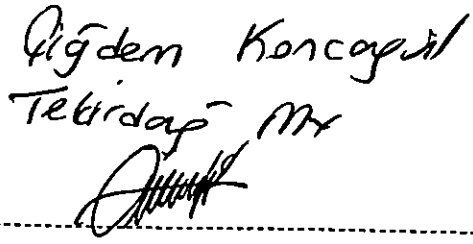 Çiğdem Koncagül
Tekirdağ Mv